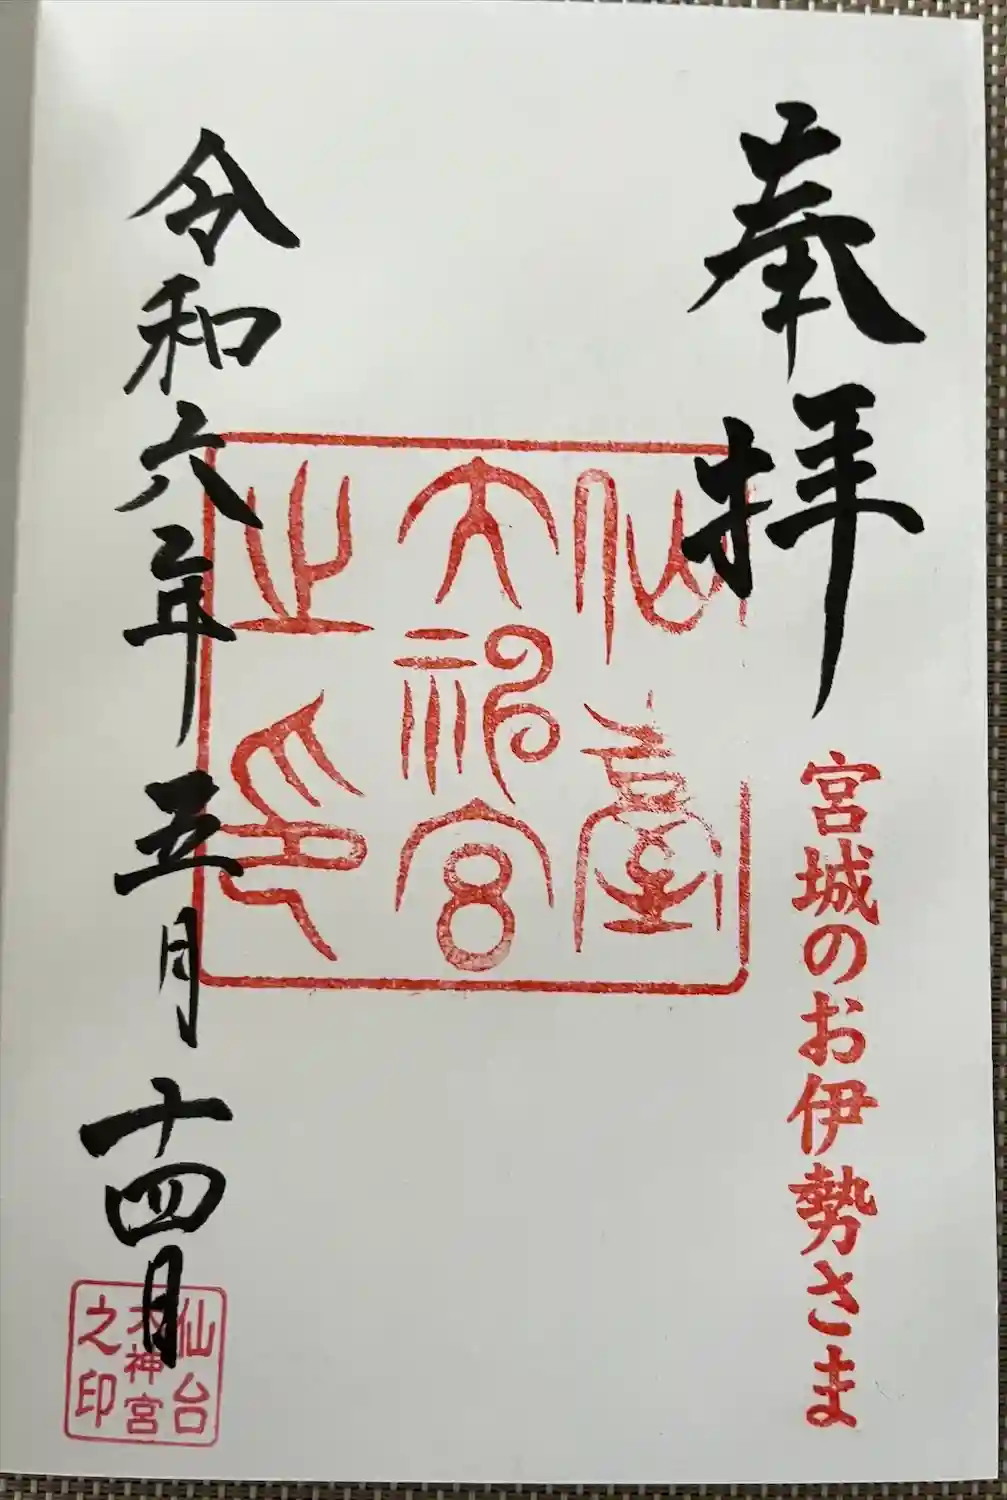 奉拝
宮城のお伊勢さま
仙臺
大神宮
之印
令和六年五月十四日
仙台
大神宮
之印